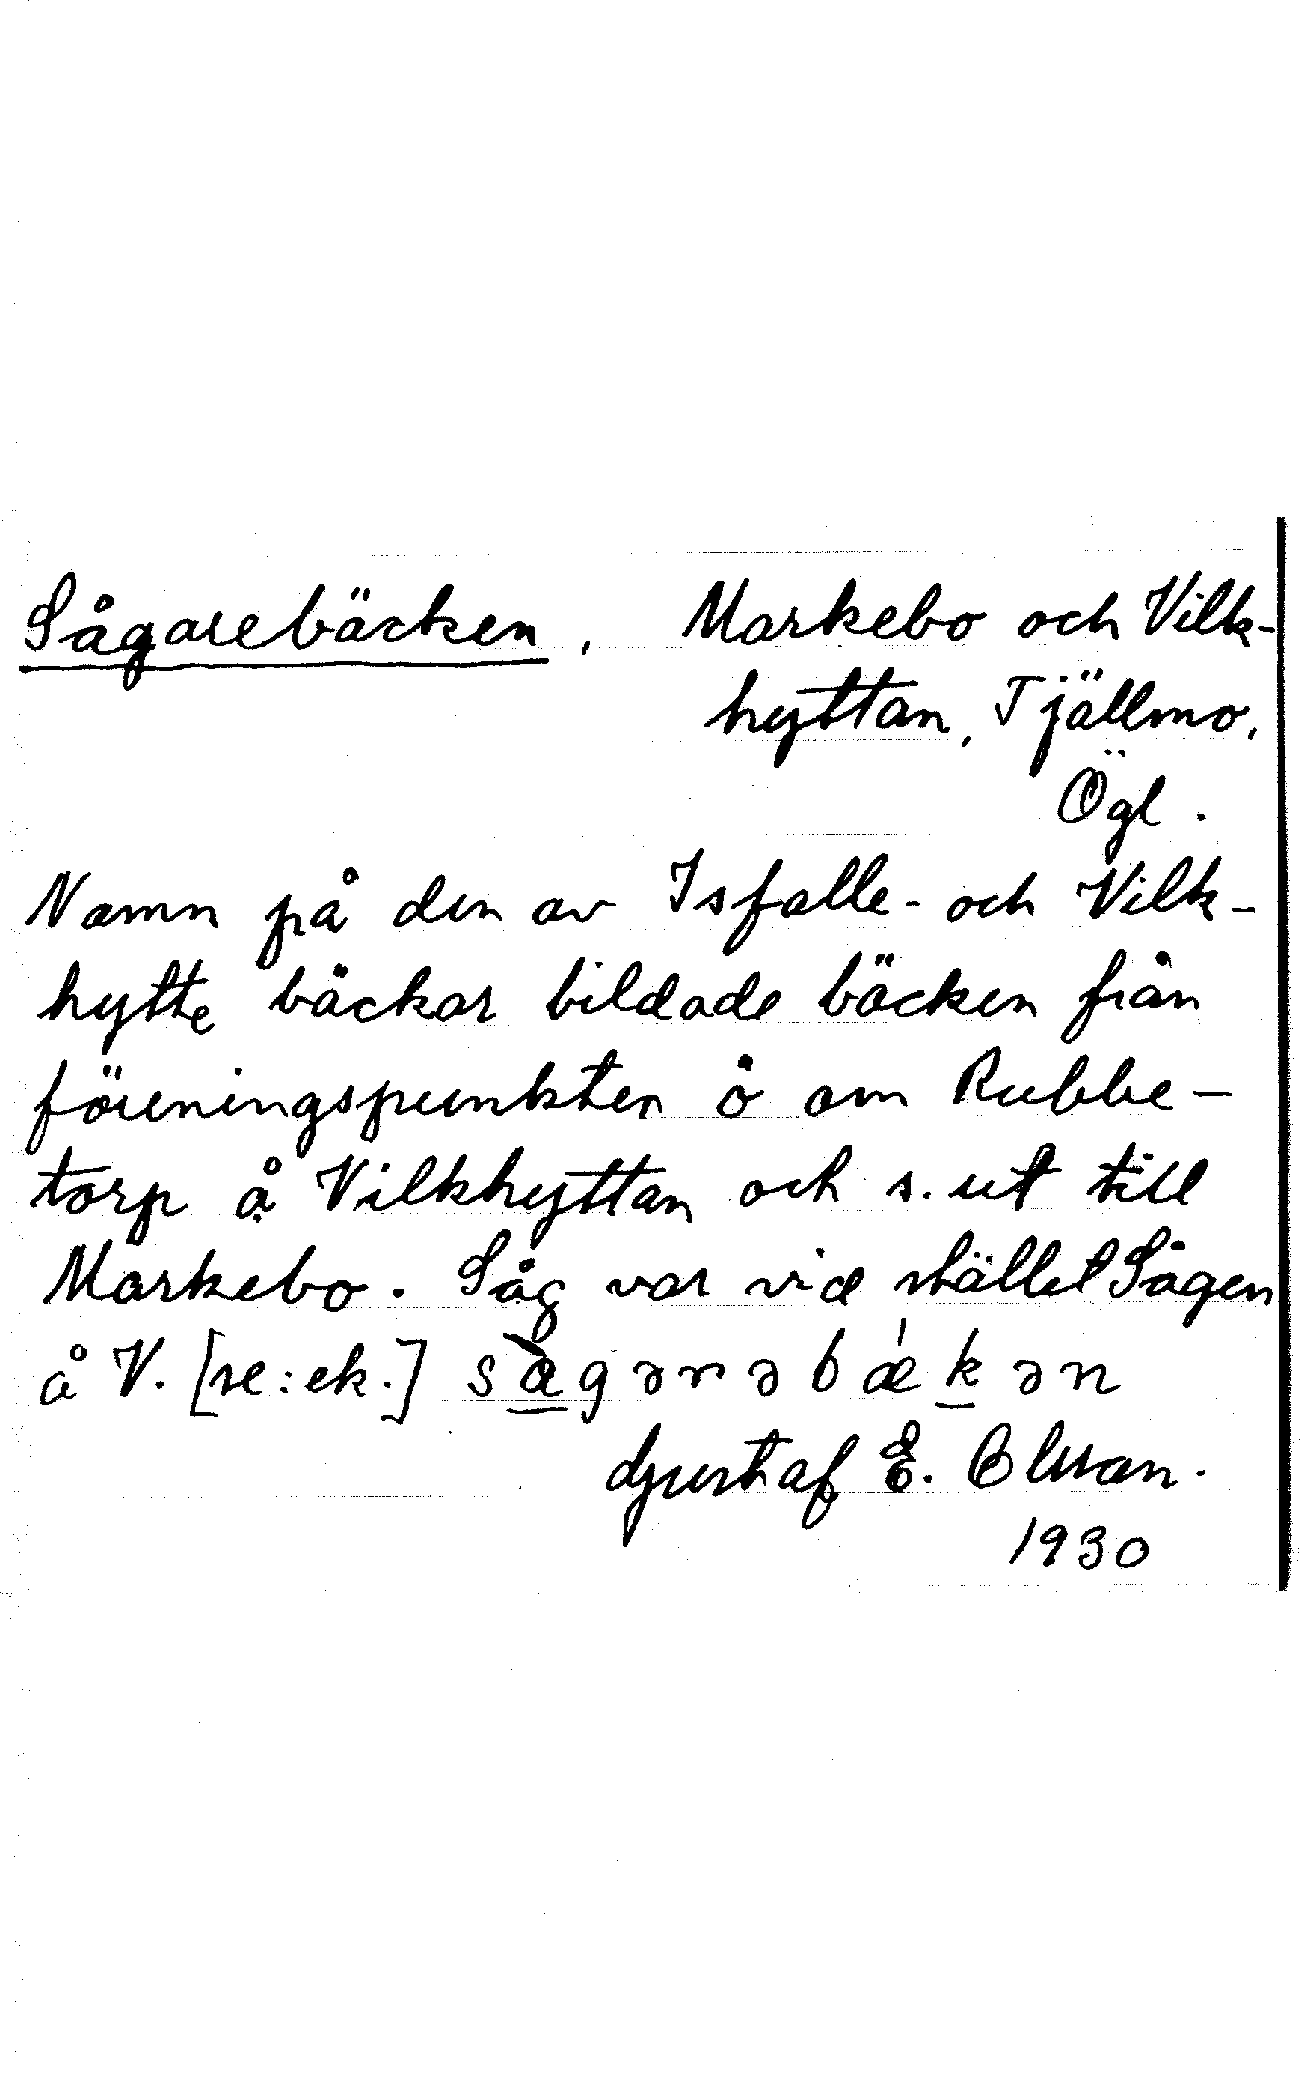 Sågarebäcken, Markebo och Vilk-
hyttan, Tjällmo,
Ögl.
Namn på den av Isfalle- och Vilk-
hytte bäckar bildade bäcken från
föreningspunkten ö om Rubbe-
torp å Vilkhyttan och s. ut till
Markebo. Såg var vid stället Sågen
å V. [se: ek.] sàgərəbækən
Gustaf E. Olsson.
1930